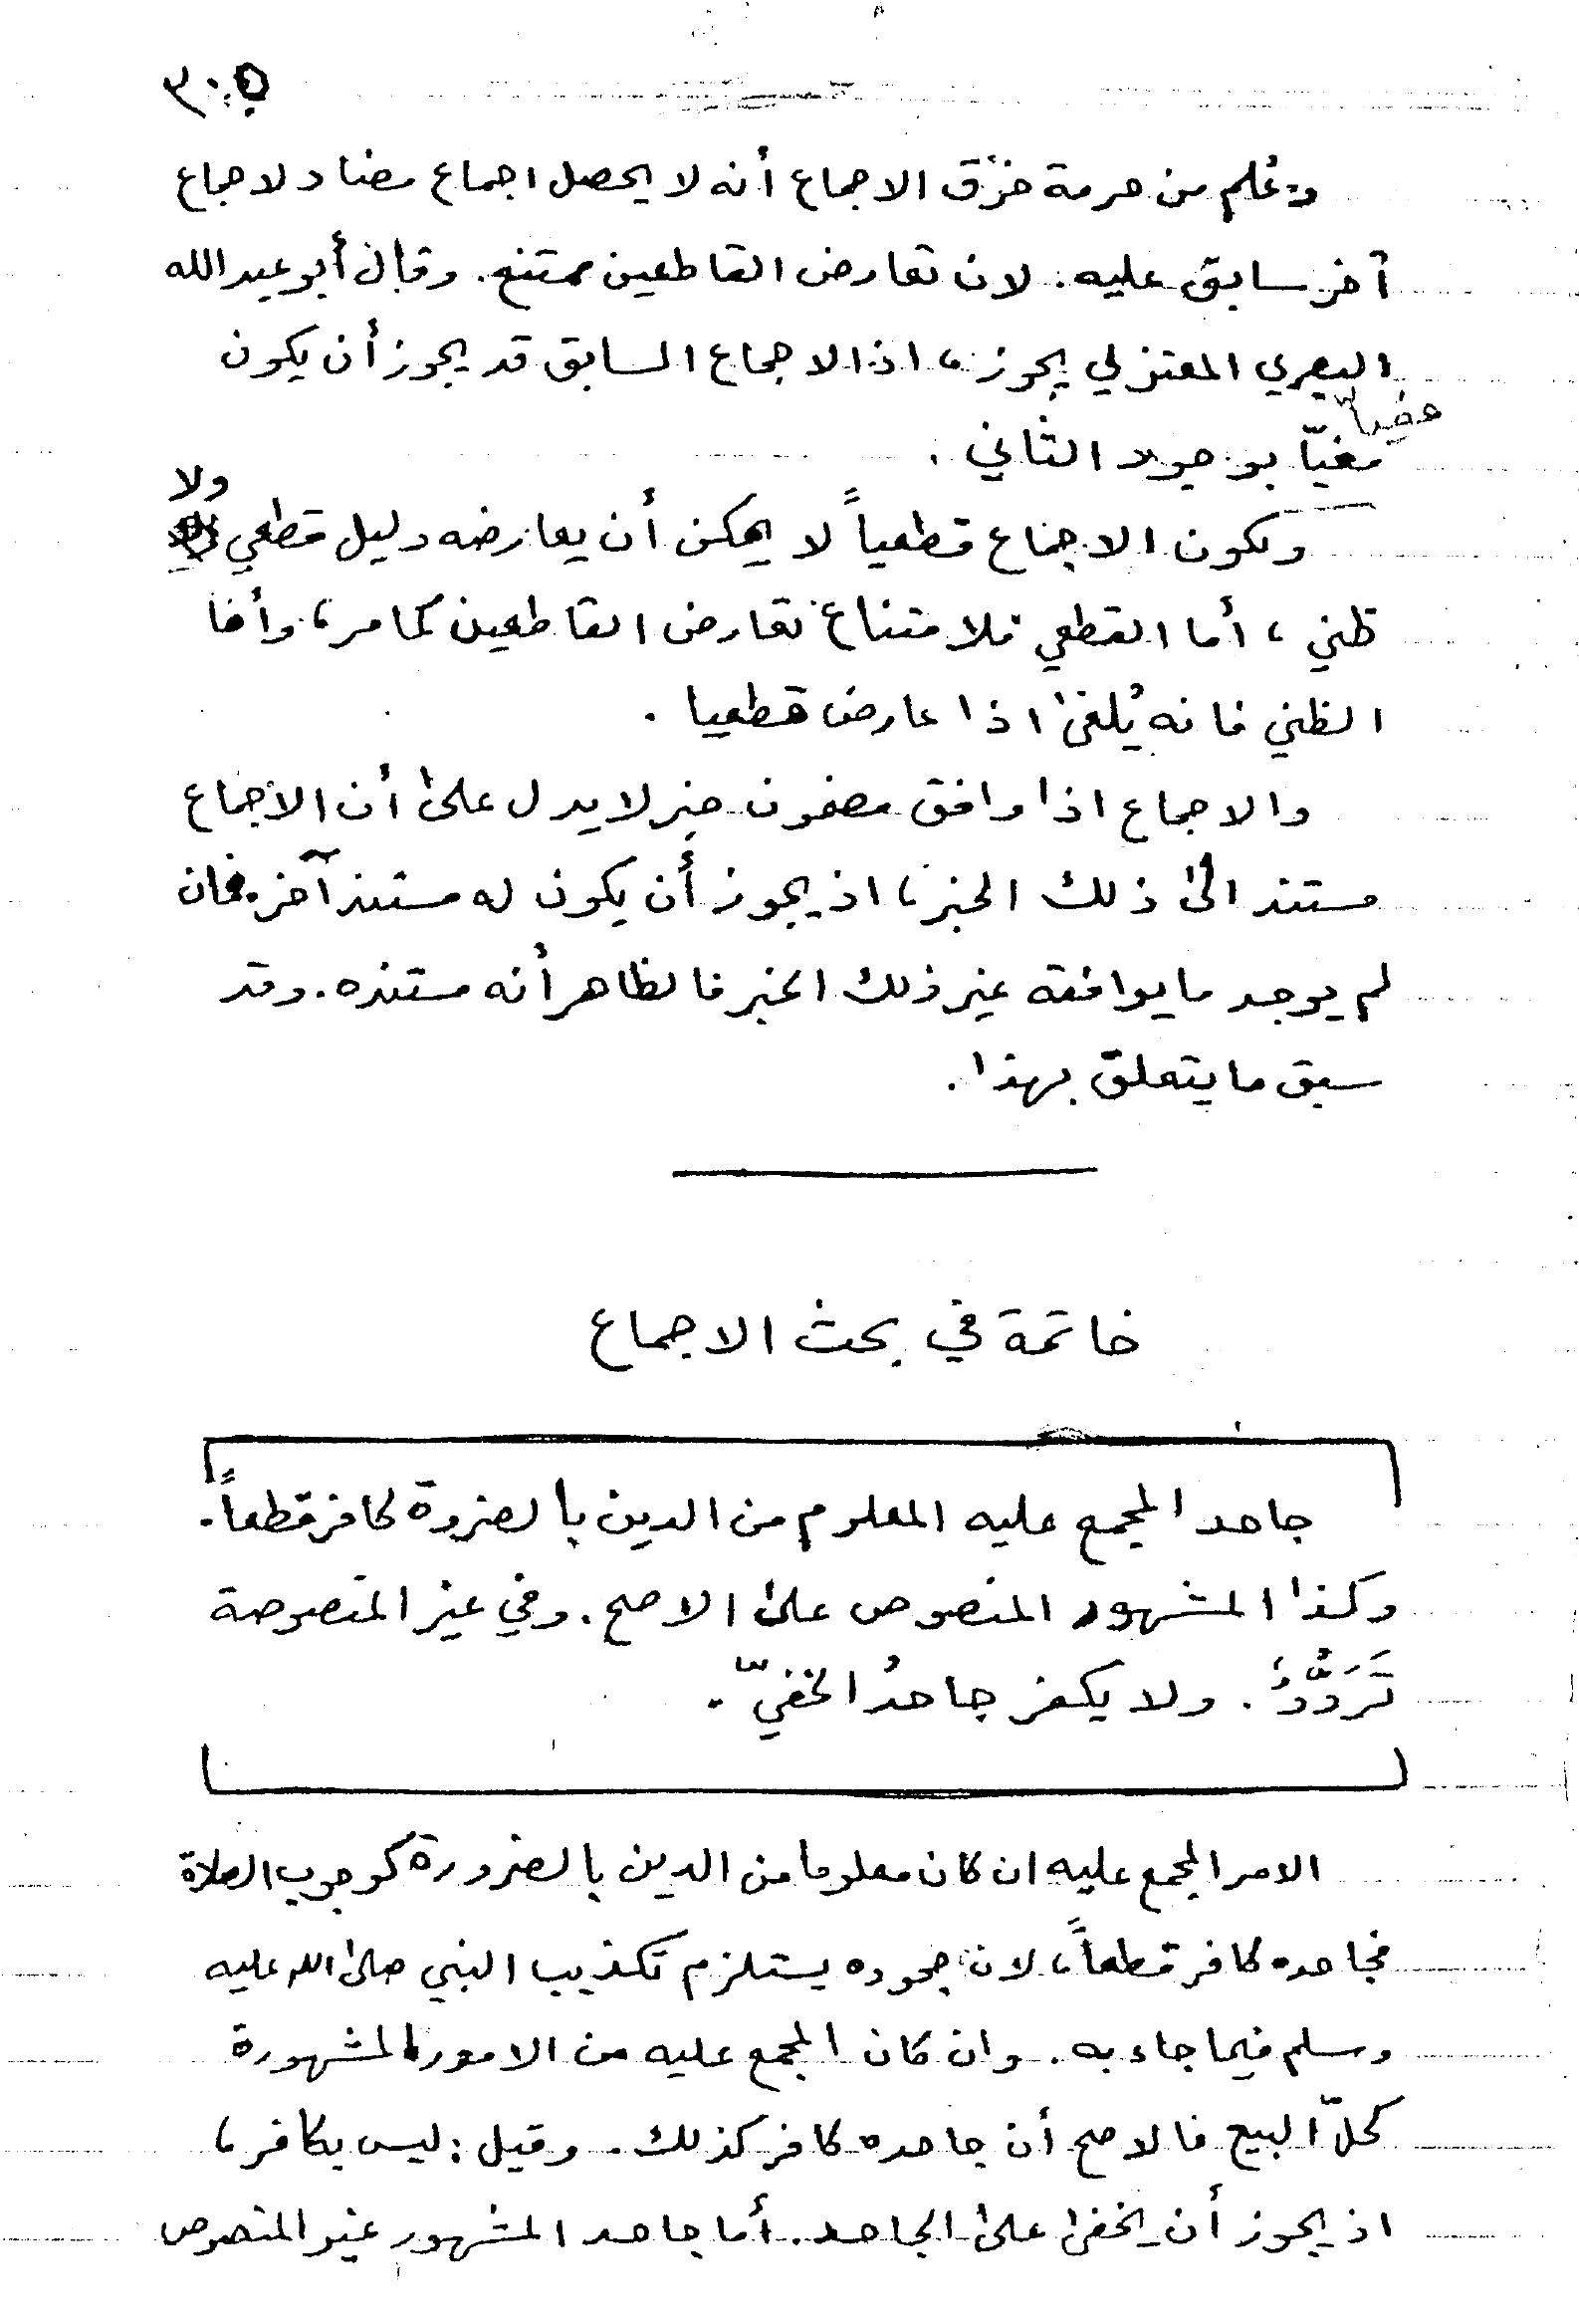 ٣٠٥
وعُلم من حرمة خرْق الاجماع أنه لا يحصل اجماع مضاد لاجماع
آخر سابق عليه. لان تعارض القاطعين ممتنع. وقال أبو عبد الله
البصري المعتزلي يجوز، اذ الاجماع السابق قد يجوز أن يكون
مغيّا بوجود الثاني.
ولا
ولكون الاجماع قطعياً لا يمكن أن يعارضه دليل قطعي
ظني، أما القطعي فلامتناع تعارض القاطعين كما مر، وأما
الظني فانه يُلغىٰ اذا عارض قطعيا.
والاجماع اذا وافق مضمون خبر لا يدل علىٰ أن الاجماع
مستند الىٰ ذلك الخبر، اذ يجوز أن يكون له مستند آخر. فان
لم يوجد ما يوافقه غير ذلك الخبر فالظاهر أنه مستنده. وقد
سبق ما يتعلق بهذا.
خاتمة في بحث الاجماع
جاحد المجمع عليه المعلوم من الدين بالضروة كافر قطعاً.
وكذا المشهور المنصوص علىٰ الاصح. وفي غير المنصوصة
تَرَدُّدٌ. ولا يكفر جاحدُ الخفيّ.
الامر المجمع عليه ان كان معلوما من الدين بالضرورة كوجوب الصلاة
فجاحده كافر قطعاً، لان جحوده يستلزم تكذيب النبي صلىٰ الله عليه
وسلم فيما جاء به. وان كان المجمع عليه من الامور المشهورة
كحلّ البيع فالاصح أن جاحده كافر كذلك. وقيل: ليس بكافر،
اذ يجوز أن يخفىٰ علىٰ الجاحد. أما جاحد المشهور غير المنصوص